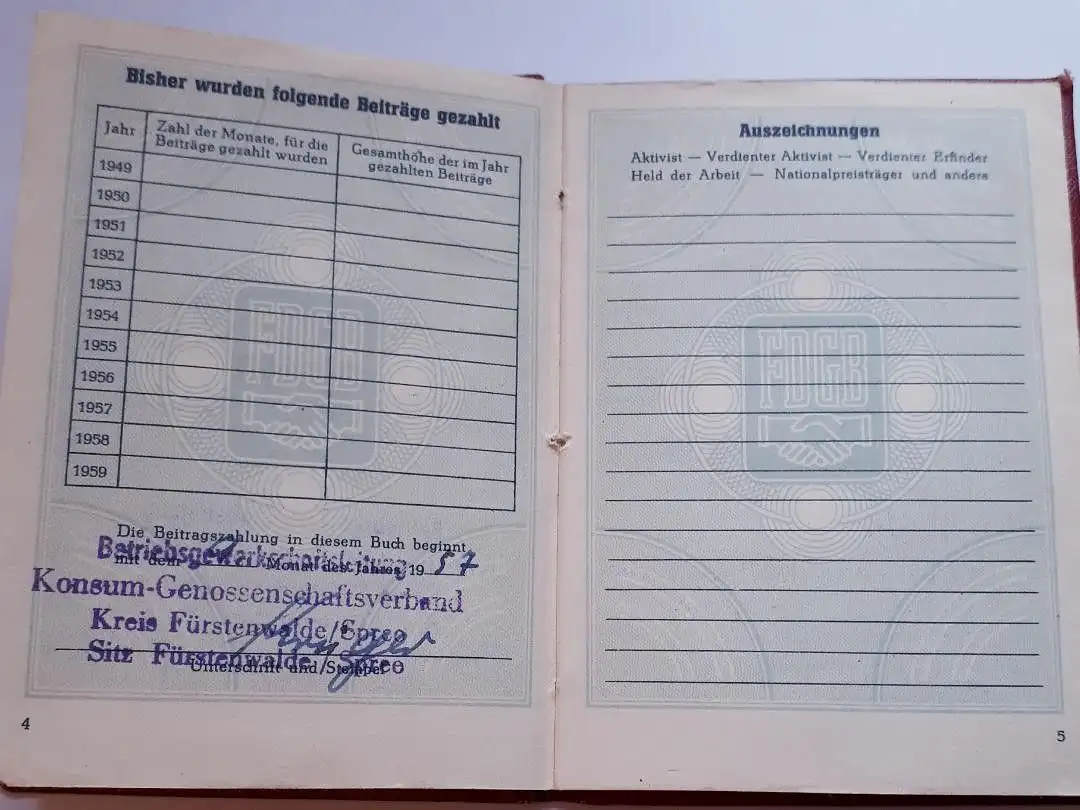 Bisher wurden folgende Beiträge gezahlt
Jahr
Zahl der Monate, für die
Beiträge gezahlt wurden
Gesamthöhe der im Jahr
gezahlten Beiträge
1949
1950
1951
1952
1953
1954
1955
1956
1957
1958
1959
FDGB
Die Beitragszahlung in diesem Buch beginnt
mit dem Monat des Jahres 1957
Betriebsgewerkschaftsleitung
Konsum-Genossenschaftsverband
Kreis Fürstenwalde/Spree
Sitz Fürstenwalde/Spree
Unterschrift und Stempel
4
Auszeichnungen
Aktivist — Verdienter Aktivist — Verdienter Erfinder
Held der Arbeit — Nationalpreisträger und andere
FDGB
5